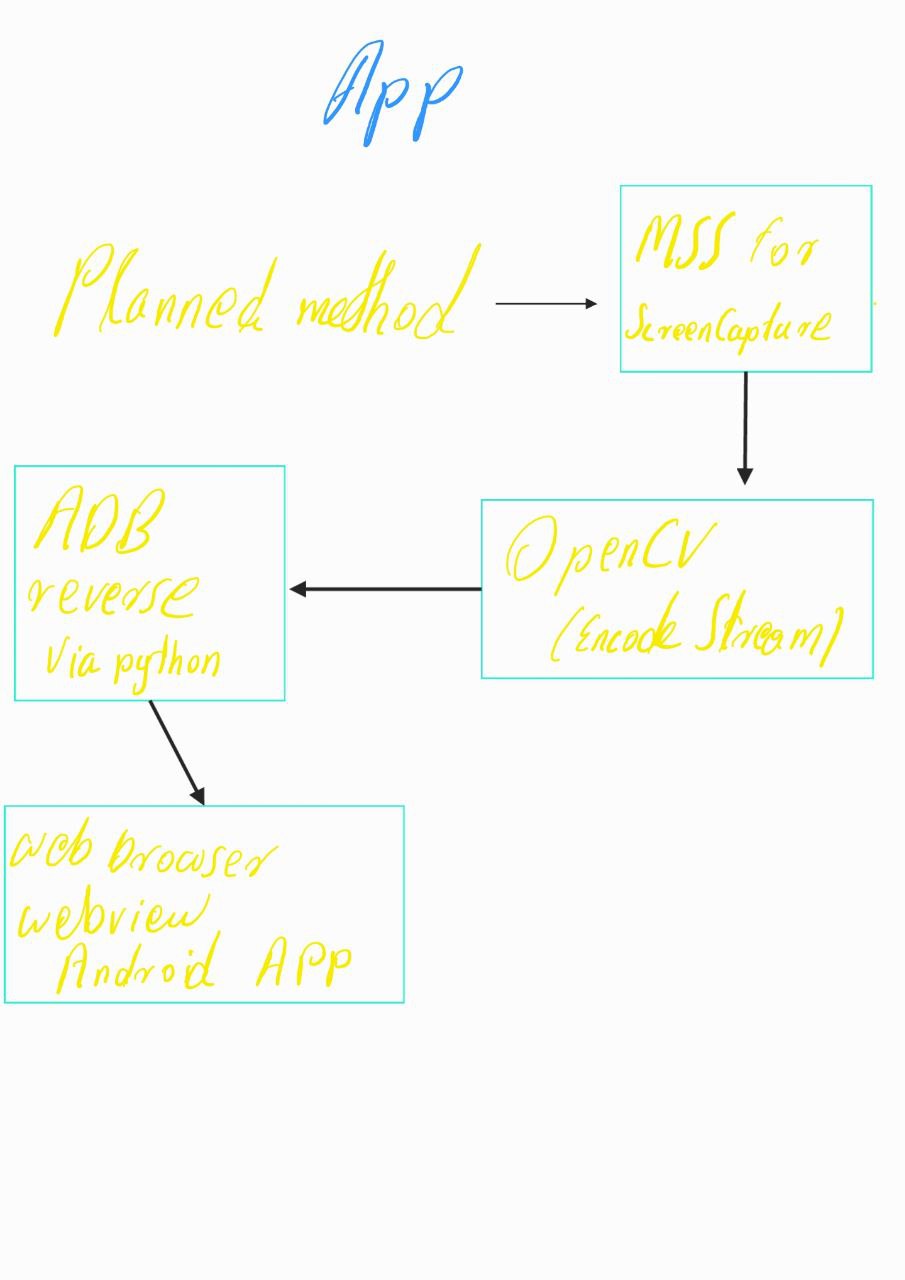 App
Planned method
MSS for
ScreenCapture
OpenCV
(Encode Stream)
ADB
reverse
via python
web browser
webview
Android APP